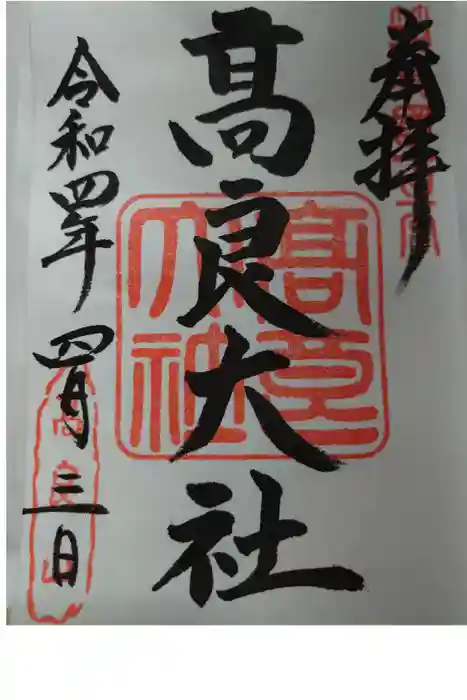 奉拝
髙良大社
髙良大社
令和四年四月三日
高良山